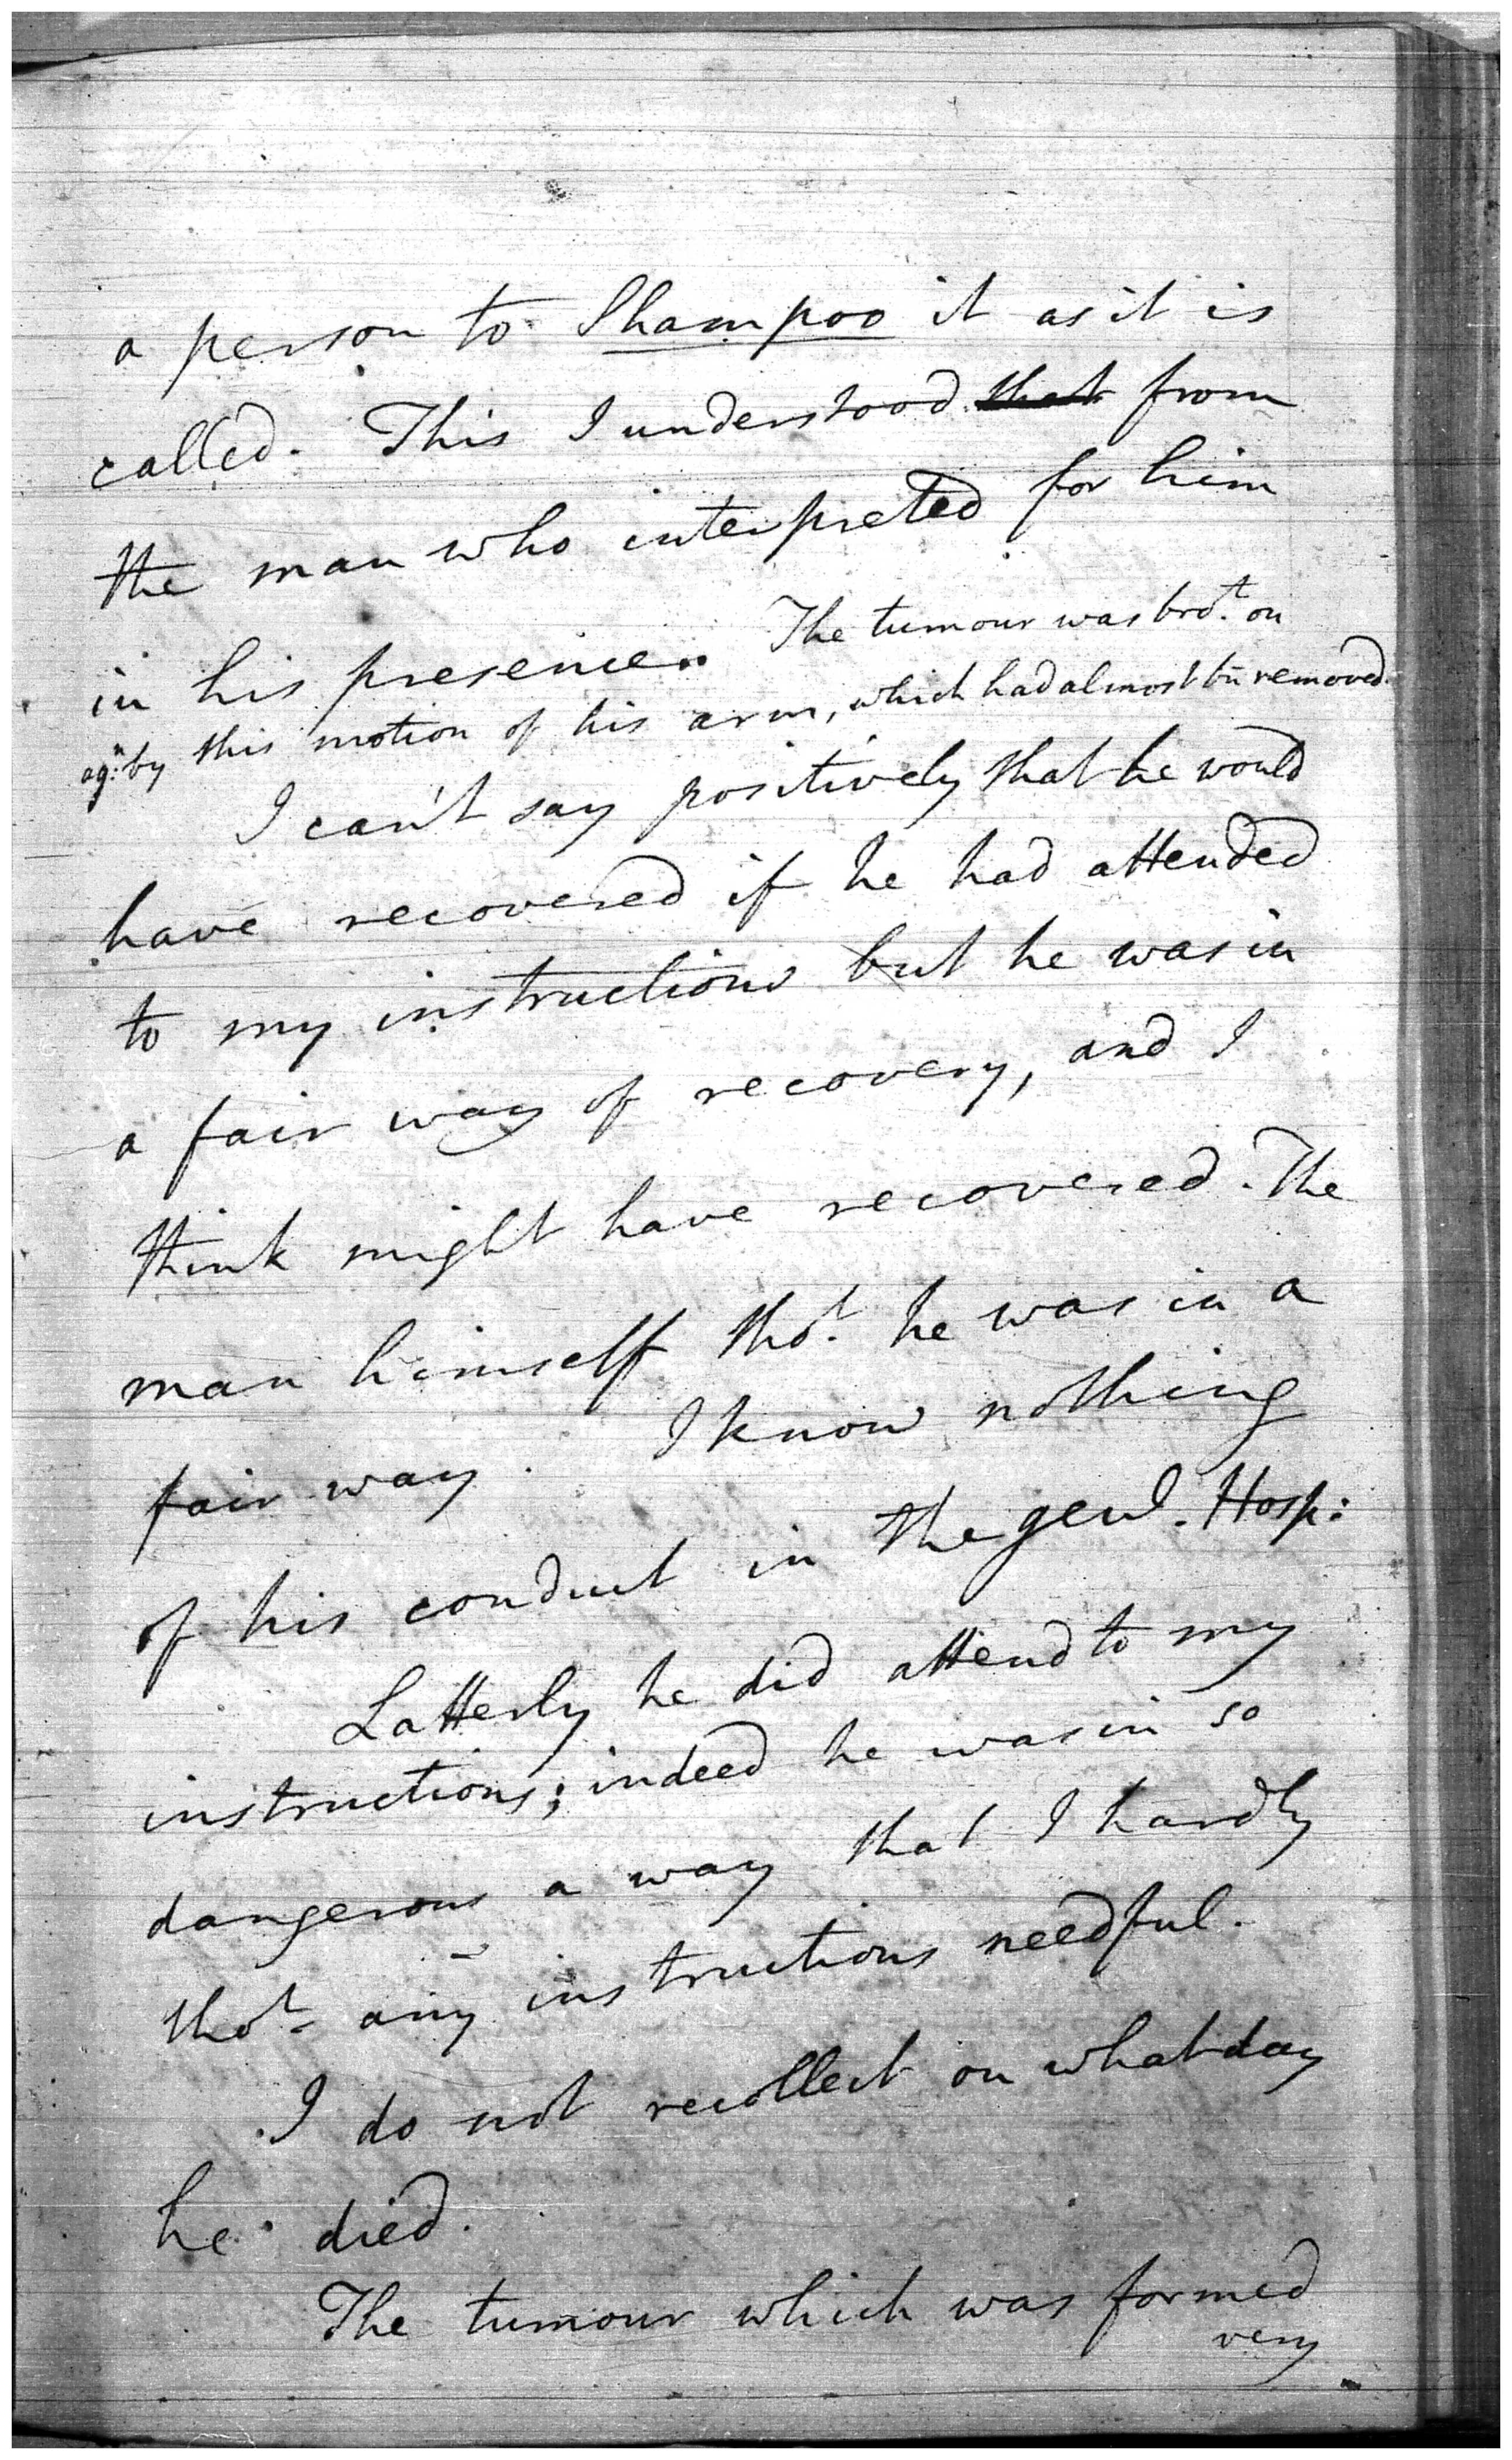 a person to Shampoo it as it is
called. This I understood that from
the man who interpreted for him
in his presence. The tumour was bro.t on
ag:n by this motion of his arm, which had almost bn removed.
I can't say positively that he would
have recovered if he had attended
to my instructions but he was in
a fair way of recovery, and I
think might have recovered. The
man himself tho.t he was in a
fair way. I know nothing
of his conduct in the genl. Hosp:
Latterly he did attend to my
instructions; indeed he was in so
dangerous a way that I hardly
tho.t any instructions needful.
I do not recollect on what day
he died.
The tumour which was formed
very